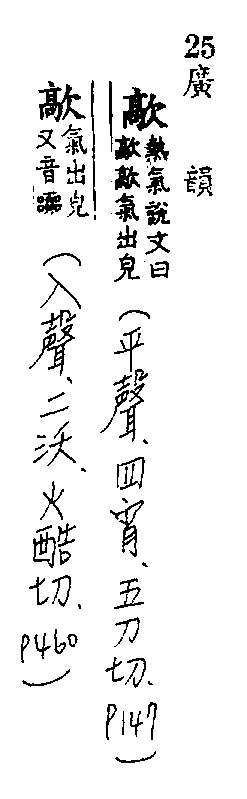 25 廣韻
歊 熱氣說文曰
歊歊氣出皃
(平聲、四宵、五刀切、P147)
歊 氣出皃
又音
(入聲、二沃、火酷切、P460)